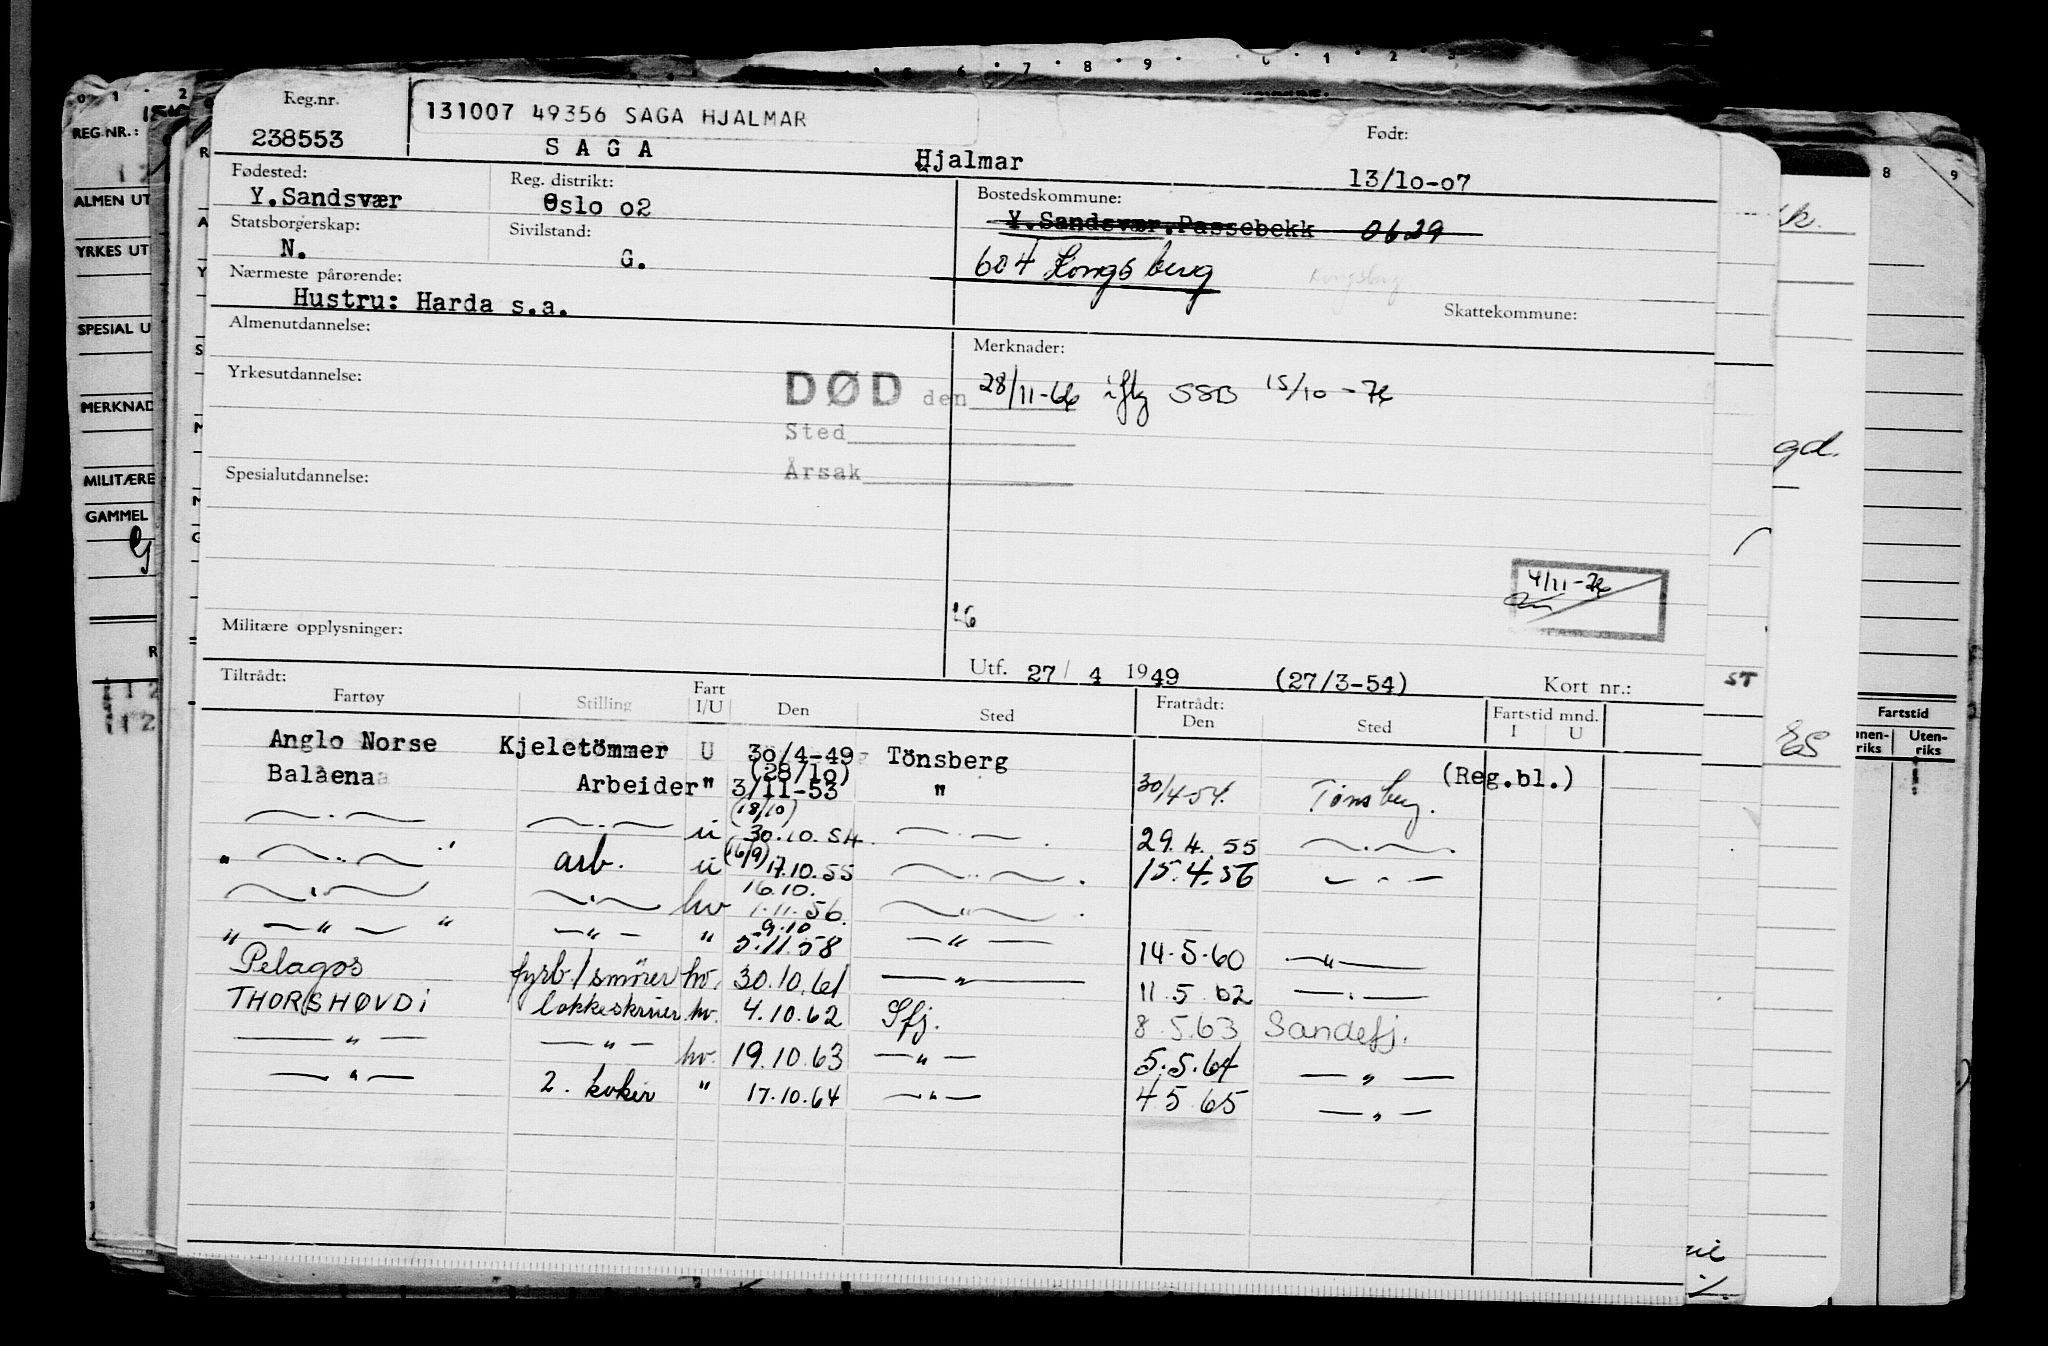 Reg.nr.
238553
131007 49356 SAGA HJALMAR
S A G A
Hjalmar
Født:
13/10-07
Fødested:
Y.Sandsvær
Reg. distrikt:
Oslo o2
Bostedskommune:
Y.Sandsvær.Passebekk 0629
604 Kongsberg
Kongsberg
Skattekommune:
Statsborgerskap:
N.
Sivilstand:
G.
Nærmeste pårørende:
Hustru: Harda s.a.
Almenutdannelse:
Merknader:
Yrkesutdannelse:
DØD den 28/11-66 iflg SSB 15/10-76
Sted
Årsak
Spesialutdannelse:
4/11-76
Militære opplysninger:
Utf. 27/ 4 1949 (27/3-54) Kort nr.:
Tiltrådt:
Fartøy Stilling Fart I/U Den Sted Fratrådt: Den Sted Fartstid mnd. I U
Anglo Norse Kjeletömmer U 30/4-49 Tönsberg (Reg.bl.)
Balaena Arbeider " (28/10) 3/11-53 " 30/4-54. Tönsberg.
—.— —.— u (18/10) 30.10.54. —.— 29.4.55 —..—
" —..— " arb. u (16/9) 17.10.55 —..— 15.4.56 — " —
—.— —.— hv 16.10. 1.11.56. —"—
" —"— " —"— " 9.10 5.11.58 —"— 14.5.60 —"—
Pelagos fyrb./smörer hv. 30.10.61 —"— 11.5.62 —.—
THORSHØVDI lokkeskruer hv. 4.10.62 Sfj. 8.5.63 Sandefj.
—"— —"— hv. 19.10.63 —"— 5.5.64 —"—
—"— 2. koker " 17.10.64 —"— 4.5.65 —"—
REG.NR.:
ALMEN UT
YRKES UT
SPESIAL U
MERKNAD
MILITÆRE
GAMMEL
gd.
ST
Fartstid
Uten-
riks